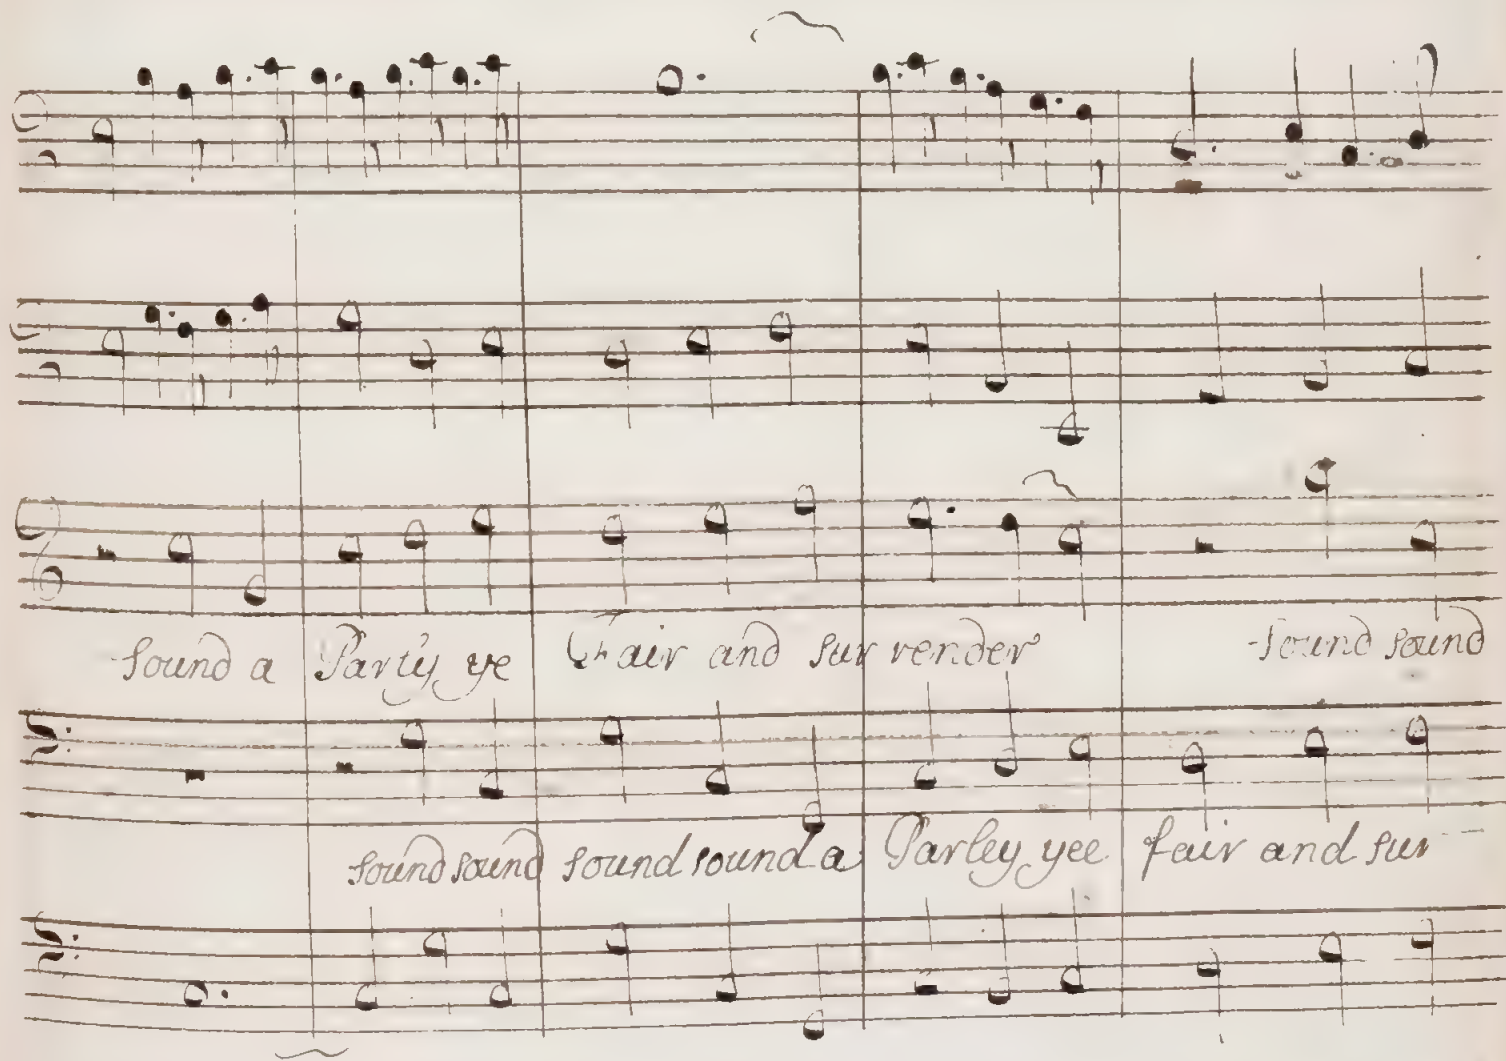 sound a Party ye Fair and sur render sound sound
sound sound sound sound a Parley yee fair and sur